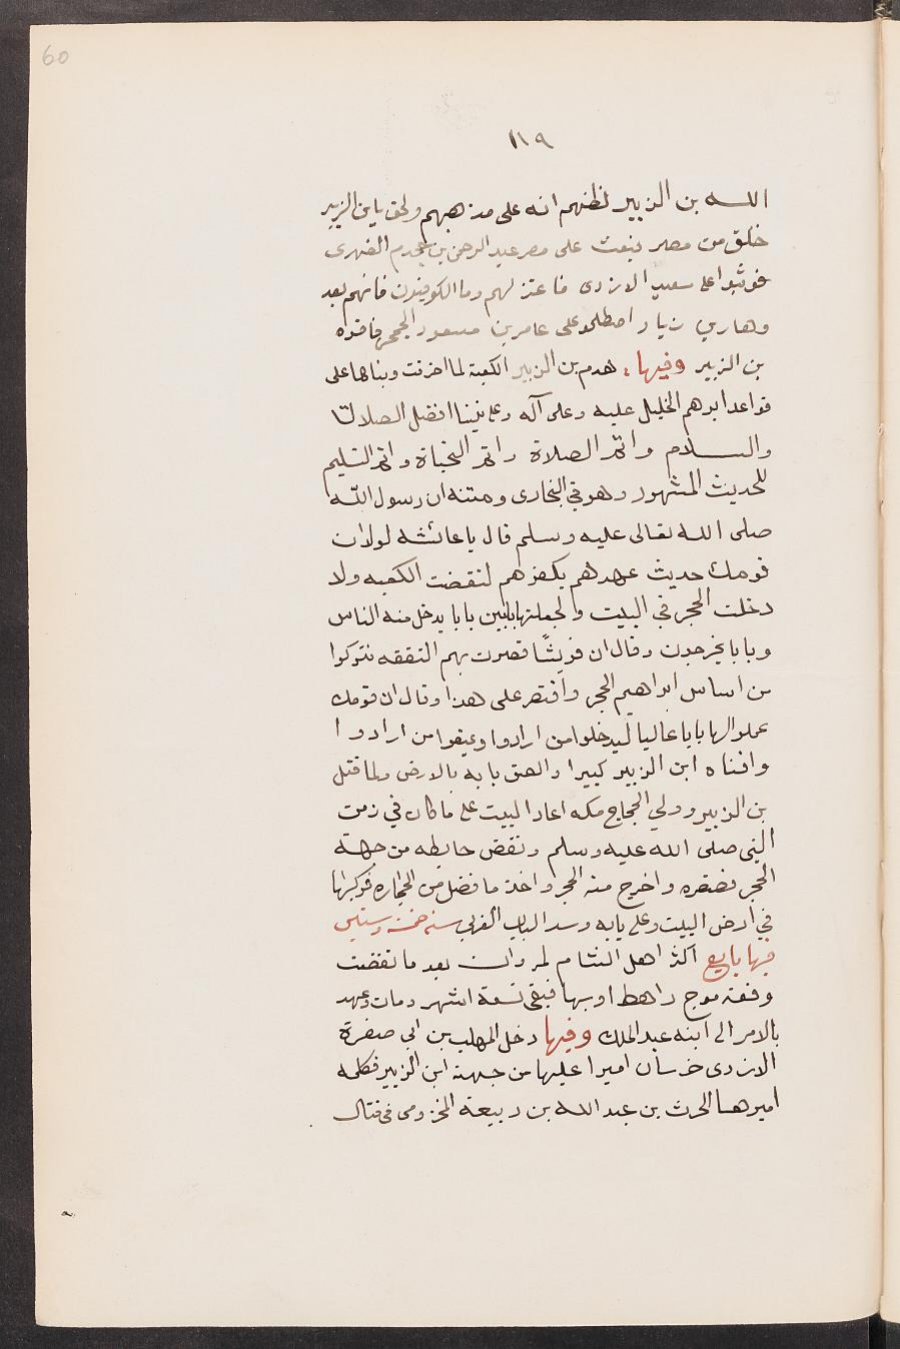 60
١١٩
الله بن الزبير لظنهم انه على مذهبهم ولحق بابن الزبير
خلق من مصر فبعث على مصر عبد الرحمن بن جحدم الفهرى
فوثبوا على سعيد الازدى فاعتزلهم وما الكوفيون فانهم بعد
وهارب زياد اصطلحوا على عامر بن مسعود الجمحي فاقره
بن الزبير وفيها هدم بن الزبير الكعبة لما احرقت وبناها على
قواعد ابرهم الخليل عليه وعلى آله وعلى نبينا افضل الصلات
والسلام واتم الصلاة واتم التحياة واتم التسليم
للحديث المشهور وهو في البخارى ومتنه ان رسول الله
صلى الله تعالى عليه وسلم قال يا عائشه لولا ان
قومك حديث عهدهم بكفرهم لنقضت الكعبه ولا
دخلت الحجر في البيت والجعلتها بابين بابا يدخل منه الناس
وبابا يخرجون وقال ان قريشًا قصرت بهم النفقه فتركوا
من اساس ابراهيم الحجر واقتصر على هذا وقال ان قومك
عملوا لها بابا عاليا ليدخلوا من ارادوا ويمنعوا من ارادوا
وافناه ابن الزبير كبيرا والصق بابه بالارض ولما قتل
بن الزبير وولي الحجاج مكه اعاد البيت على ما كان في زمن
النبي صلى الله عليه وسلم ونقض حايطه من جهة
الحجر فضقره واخرج منه الحجر واخذ ما فضل من الحجاره فركبها
في ارض البيت وعلى بابه وسد الباب الغربي سنه خمسة وستين
فيها بايع اكثر اهل الشام لمروان بعد ما نقضت
وقعة مرج راهط اوبها فبقى تسعة اشهر ومات وعهد
بالامر الى ابنه عبد الملك وفيها دخل المهلب بن ابى صفرة
الازدى خرسان اميرا عليها من جهة ابن الزبير فكلمه
اميرها الحرث بن عبد الله بن ربيعة المخزومى فى قتال